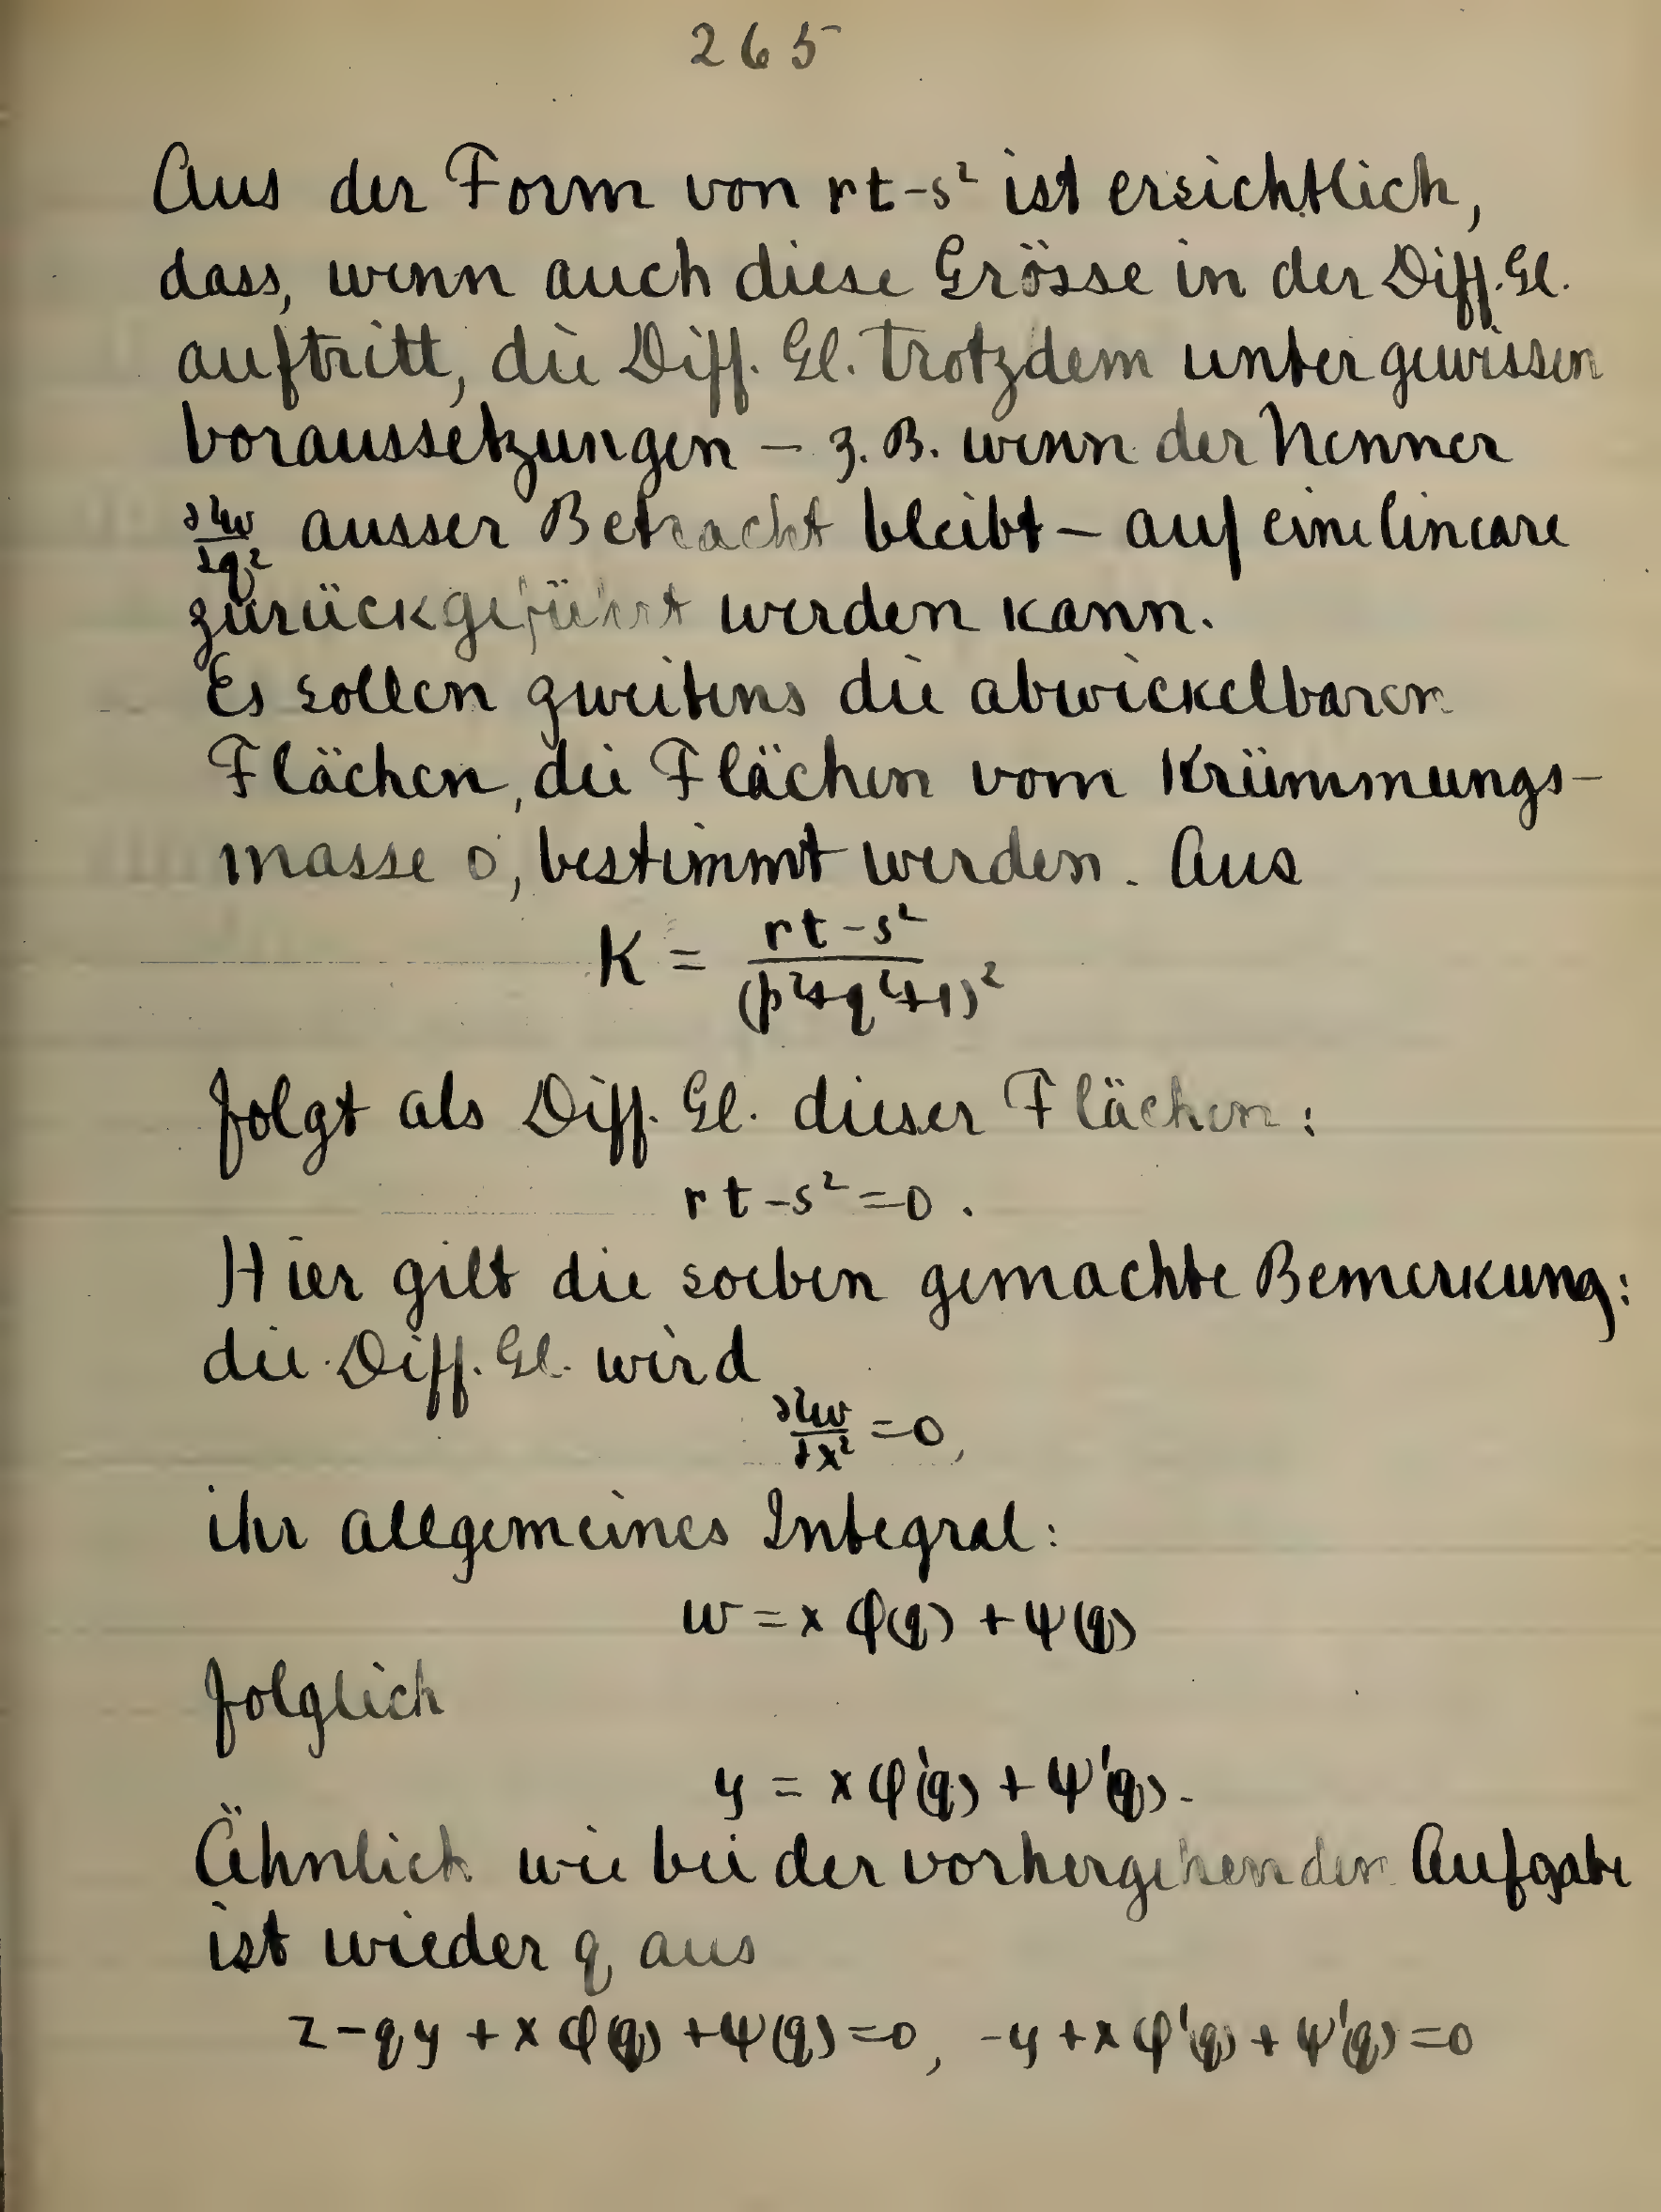 265
Aus der Form von rt-s² ist ersichtlich,
dass, wenn auch diese Grösse in der Diff. Gl.
auftritt, die Diff. Gl. trotzdem unter gewissen
Voraussetzungen – z. B. wenn der Nenner
∂²w/∂q² ausser Betracht bleibt – auf eine lineare
zurückgeführt werden kann.
Es sollen zweitens die abwickelbaren
Flächen, die Flächen vom Krümmungs-
masse 0, bestimmt werden. Aus
K = (rt-s²)/(p²+q²+1)²
folgt als Diff. Gl. dieser Flächen:
rt-s²=0.
Hier gilt die soeben gemachte Bemerkung:
die Diff. Gl. wird
∂²w/∂x² =0,
ihr allgemeines Integral:
w = x φ(q) + ψ(q)
folglich
y = x φ'(q) + ψ'(q).
Ähnlich wie bei der vorhergehenden Aufgabe
ist wieder q aus
z-qy+xφ(q)+ψ(q)=0, -y+xφ'(q)+ψ'(q)=0